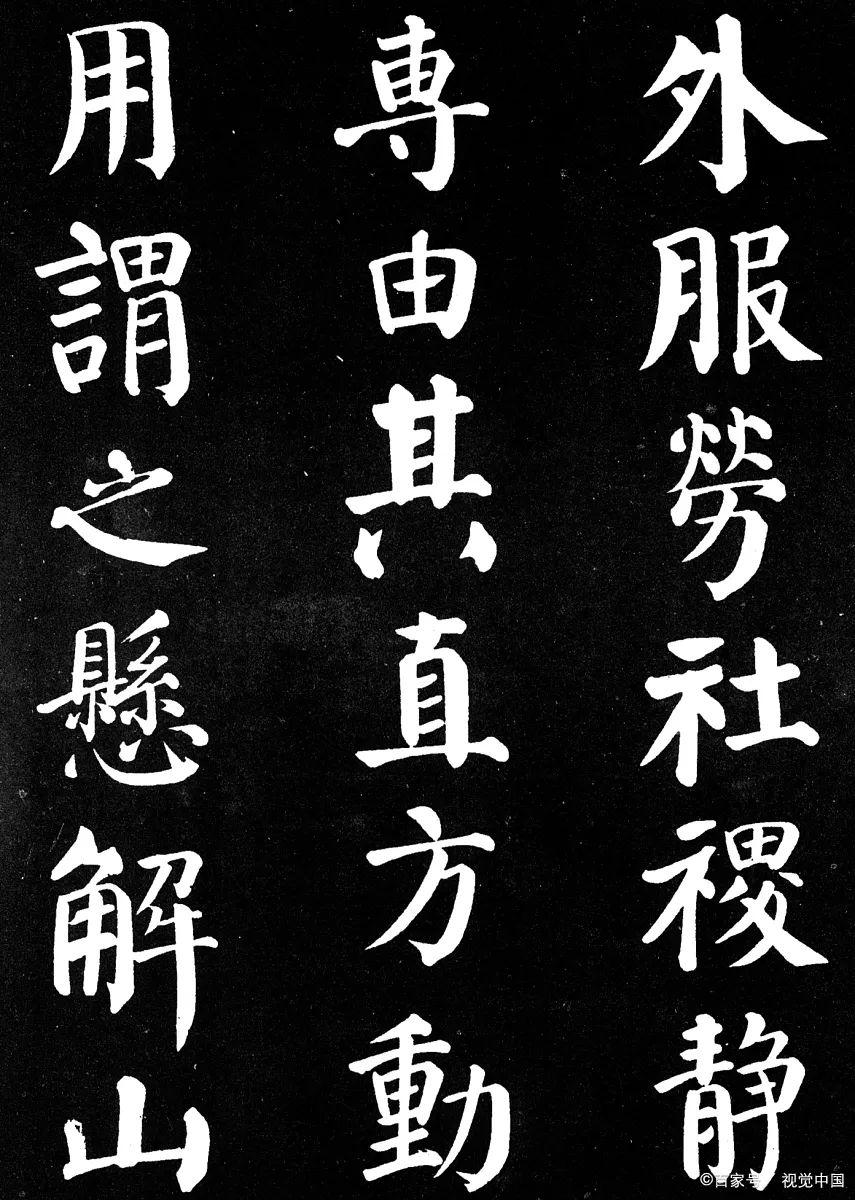 外服勞社禝静
専由其直方動
用謂之懸解山
©百家号/视觉中国